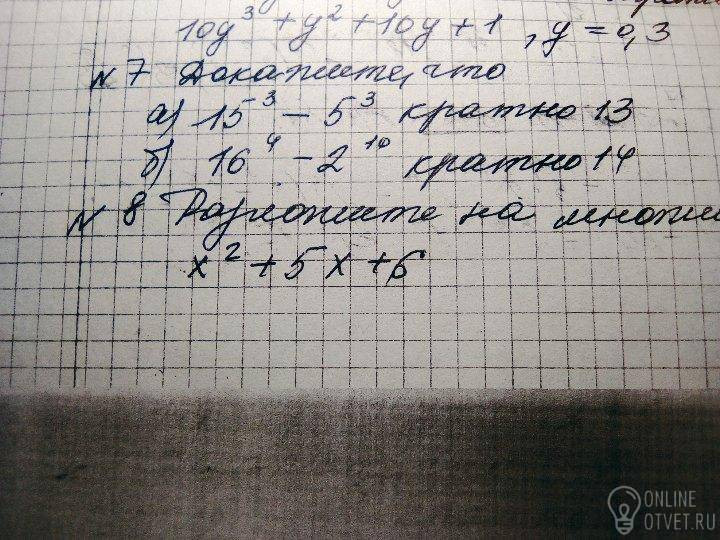 10y³ + y² + 10y + 1, y = 0,3
№ 7 Докажите, что
а) 15³ – 5³ кратно 13
б) 16⁴ – 2¹⁰ кратно 14
№ 8 Разложите на множи
x² + 5x + 6
ONLINE
OTVET.RU